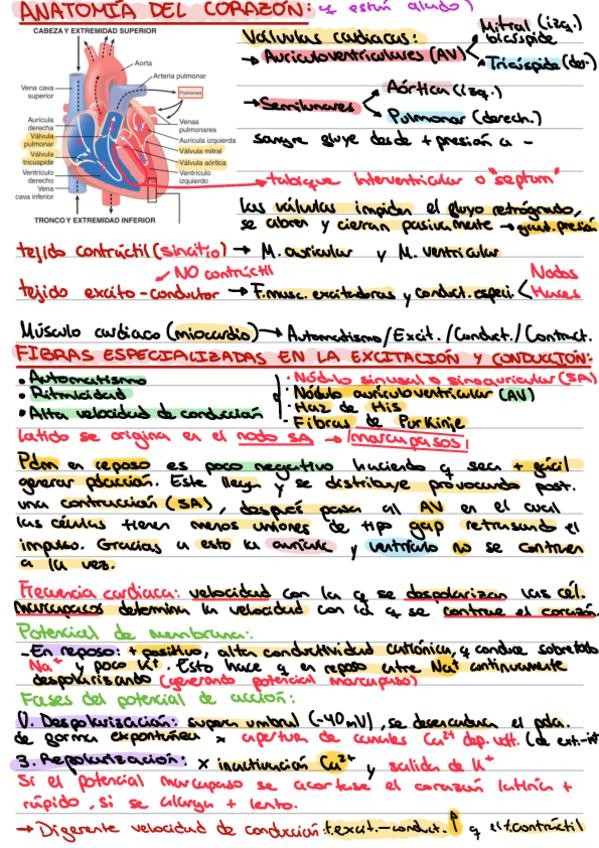 ANATOMÍA DEL CORAZÓN:
CABEZA Y EXTREMIDAD SUPERIOR
Aorta
Arteria pulmonar
Pulmones
Vena cava superior
Venas pulmonares
Aurícula derecha
Aurícula izquierda
Válvula pulmonar
Válvula mitral
Válvula tricúspide
Válvula aórtica
Ventrículo derecho
Ventrículo izquierdo
Vena cava inferior
TRONCO Y EXTREMIDAD INFERIOR
Válvulas cardiacas:
→ Auriculoventriculares (AV)
Mitral (izq.)
bicúspide
Tricúspide (der.)
→ Semilunares
Aórtica (izq.)
Pulmonar (derech.)
sangre fluye desde + presión a -
→ tabique interventricular o "septum"
Las válvulas impiden el flujo retrógrado,
se abren y cierran pasivamente → grad. presión
tejido contráctil (sincitio) → M. auricular y M. ventricular
NO contráctil
tejido excito-conductor → F. musc. excitadoras y conduct. especi.
Nodos
Haces
Músculo cardiaco (miocardio) → Automatismo/Excit./Conduct./Contract.
FIBRAS ESPECIALIZADAS EN LA EXCITACIÓN Y CONDUCCIÓN:
• Automatismo
• Ritmicidad
• Alta velocidad de conducción
· Nódulo sinusal o sinoauricular (SA)
· Nódulo auriculoventricular (AV)
· Haz de His
- Fibras de Purkinje
latido se origina en el nodo SA → marcapasos
Pdm en reposo es poco negativo haciendo q sea + fácil
generar pdacción. Este llega y se distribuye provocando post.
una contracción (SA), después pasa al AV en el cual
las células tienen menos uniones de tipo gap retrasando el
impulso. Gracias a esto la aurícula y ventrículo no se contraen
a la vez.
Frecuencia cardiaca: velocidad con la q se despolarizan las cél.
marcapasos determina la velocidad con la q se contrae el corazón.
Potencial de membrana:
- En reposo: + positivo, alta conductividad catiónica, q conduce sobretodo
Na+ y poco K+. Esto hace q en reposo entre Na+ continuamente
despolarizando (generando potencial marcapaso)
Fases del potencial de acción:
0. Despolarización: supera umbral (-40mV), se desencadena el pda.
de forma espontánea x apertura de canales Ca2+ dep. volt. (de ext.-int
3. Repolarización: x inactivación Ca2+ y salida de K+
Si el potencial marcapaso se acortase el corazón latiría +
rápido, si se alarga + lento.
→ Diferente velocidad de conducción: t.excit.-conduct. ↑ q el t.contráctil